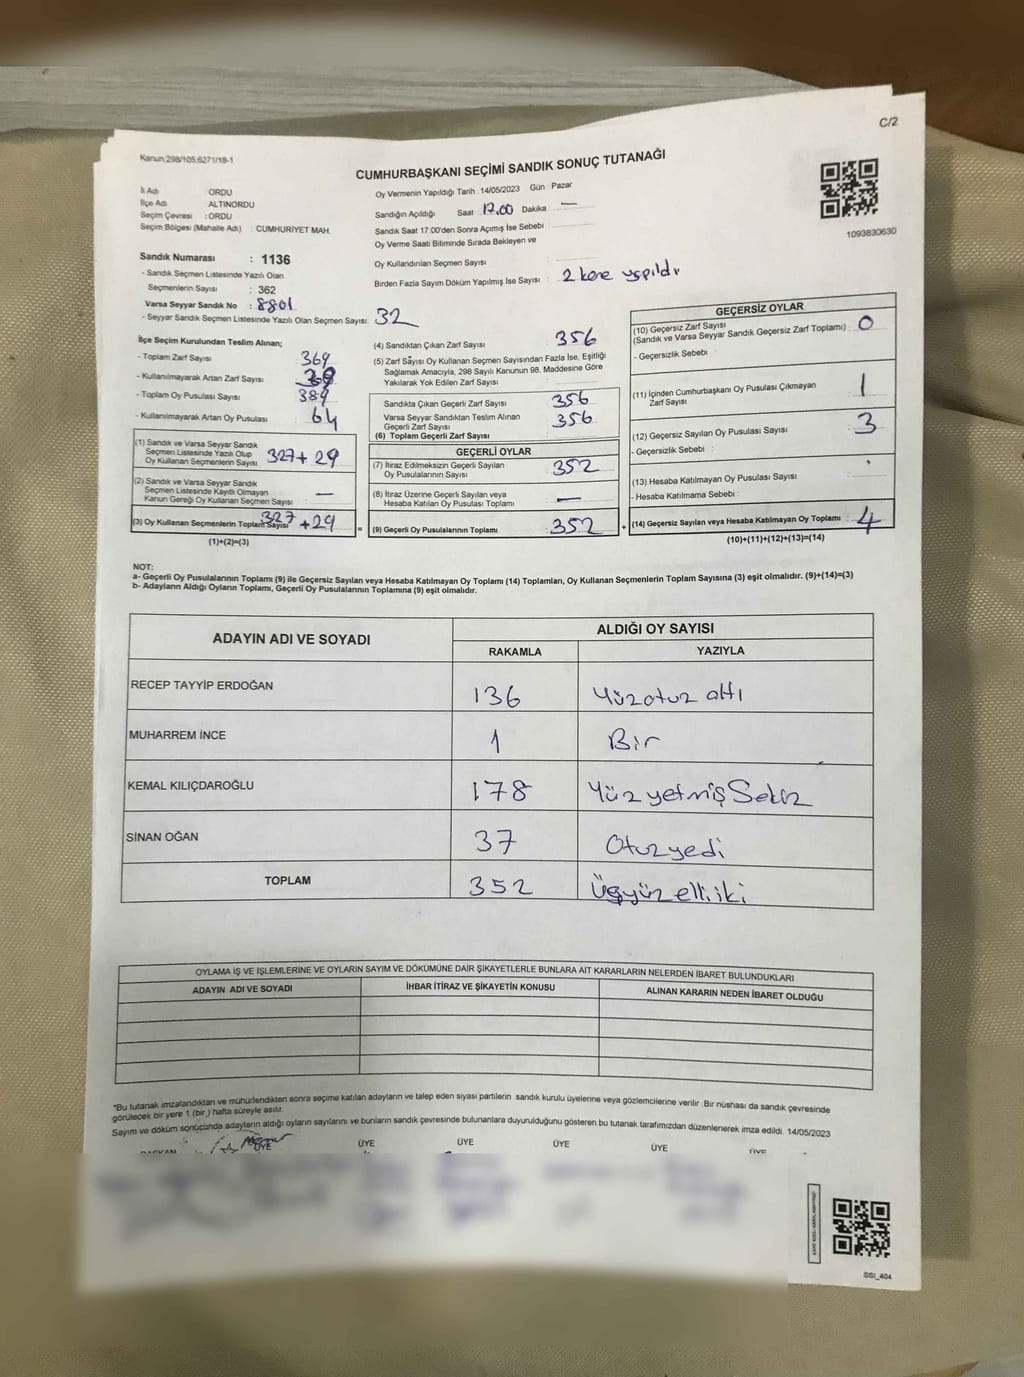 C/2
Kanun,298/105,6271/18-1
CUMHURBAŞKANI SEÇİMİ SANDIK SONUÇ TUTANAĞI
1093830630
İl Adı ORDU
İlçe Adı ALTINORDU
Seçim Çevresi : ORDU
Seçim Bölgesi (Mahalle Adı) : CUMHURİYET MAH.
Sandık Numarası : 1136
- Sandık Seçmen Listesinde Yazılı Olan
Seçmenlerin Sayısı : 362
Varsa Seyyar Sandık No : 8801
- Seyyar Sandık Seçmen Listesinde Yazılı Olan Seçmen Sayısı: 32
Oy Vermenin Yapıldığı Tarih 14/05/2023 Gün : Pazar
Sandığın Açıldığı Saat 17.00 Dakika —
Sandık Saat 17:00'den Sonra Açımış İse Sebebi
Oy Verme Saati Bitiminde Sırada Bekleyen ve
Oy Kullandırılan Seçmen Sayısı :
Birden Fazla Sayım Döküm Yapılmış İse Sayısı : 2 kere yapıldı
İlçe Seçim Kurulundan Teslim Alınan;
- Toplam Zarf Sayısı 369
- Kullanılmayarak Artan Zarf Sayısı
- Toplam Oy Pusulası Sayısı 389
- Kullanılmayarak Artan Oy Pusulası 64
(1) Sandık ve Varsa Seyyar Sandık
Seçmen Listesinde Yazılı Olup
Oy Kullanan Seçmenlerin Sayısı 327+29
(2) Sandık ve Varsa Seyyar Sandık
Seçmen Listesinde Kayıtlı Olmayan
Kanun Gereği Oy Kullanan Seçmen Sayısı —
(3) Oy Kullanan Seçmenlerin Toplam Sayısı 327 +29
(1)+(2)=(3)
(4) Sandıktan Çıkan Zarf Sayısı 356
(5) Zarf Sayısı Oy Kullanan Seçmen Sayısından Fazla İse, Eşitliği
Sağlamak Amacıyla, 298 Sayılı Kanunun 98. Maddesine Göre
Yakılarak Yok Edilen Zarf Sayısı
Sandıkta Çıkan Geçerli Zarf Sayısı 356
Varsa Seyyar Sandıktan Teslim Alınan
Geçerli Zarf Sayısı 356
(6) Toplam Geçerli Zarf Sayısı
GEÇERLİ OYLAR
(7) İtiraz Edilmeksizin Geçerli Sayılan
Oy Pusulalarının Sayısı 352
(8) İtiraz Üzerine Geçerli Sayılan veya
Hesaba Katılan Oy Pusulası Toplamı —
= (9) Geçerli Oy Pusulalarının Toplamı 352
GEÇERSİZ OYLAR
(10) Geçersiz Zarf Sayısı
(Sandık ve Varsa Seyyar Sandık Geçersiz Zarf Toplamı) : 0
- Geçersizlik Sebebi
(11) İçinden Cumhurbaşkanı Oy Pusulası Çıkmayan
Zarf Sayısı 1
(12) Geçersiz Sayılan Oy Pusulası Sayısı 3
- Geçersizlik Sebebi :
(13) Hesaba Katılmayan Oy Pusulası Sayısı
- Hesaba Katılmama Sebebi :
+ (14) Geçersiz Sayılan veya Hesaba Katılmayan Oy Toplamı 4
(10)+(11)+(12)+(13)=(14)
NOT:
a- Geçerli Oy Pusulalarının Toplamı (9) ile Geçersiz Sayılan veya Hesaba Katılmayan Oy Toplamı (14) Toplamları, Oy Kullanan Seçmenlerin Toplam Sayısına (3) eşit olmalıdır. (9)+(14)=(3)
b- Adayların Aldığı Oyların Toplamı, Geçerli Oy Pusulalarının Toplamına (9) eşit olmalıdır.
ADAYIN ADI VE SOYADI ALDIĞI OY SAYISI
RAKAMLA YAZIYLA
RECEP TAYYİP ERDOĞAN 136 Yüzotuz altı
MUHARREM İNCE 1 Bir
KEMAL KILIÇDAROĞLU 178 Yüz yetmiş Sekiz
SİNAN OĞAN 37 Otuzyedi
TOPLAM 352 Üçyüz elli iki
OYLAMA İŞ VE İŞLEMLERİNE VE OYLARIN SAYIM VE DÖKÜMÜNE DAİR ŞİKAYETLERLE BUNLARA AİT KARARLARIN NELERDEN İBARET BULUNDUKLARI
ADAYIN ADI VE SOYADI İHBAR İTİRAZ VE ŞİKAYETİN KONUSU ALINAN KARARIN NEDEN İBARET OLDUĞU
*Bu tutanak imzalandıktan ve mühürlendikten sonra seçime katılan adayların ve talep eden siyasi partilerin sandık kurulu üyelerine veya gözlemcilerine verilir. Bir nüshası da sandık çevresinde
görülecek bir yere 1 (bir) hafta süreyle asılır.
Sayım ve döküm sonucunda adayların aldığı oyların sayılarını ve bunların sandık çevresinde bulunanlara duyurulduğunu gösteren bu tutanak tarafımızdan düzenlenerek imza edildi. 14/05/2023
BAŞKAN ÜYE ÜYE ÜYE ÜYE ÜYE ÜYE
SSI_404